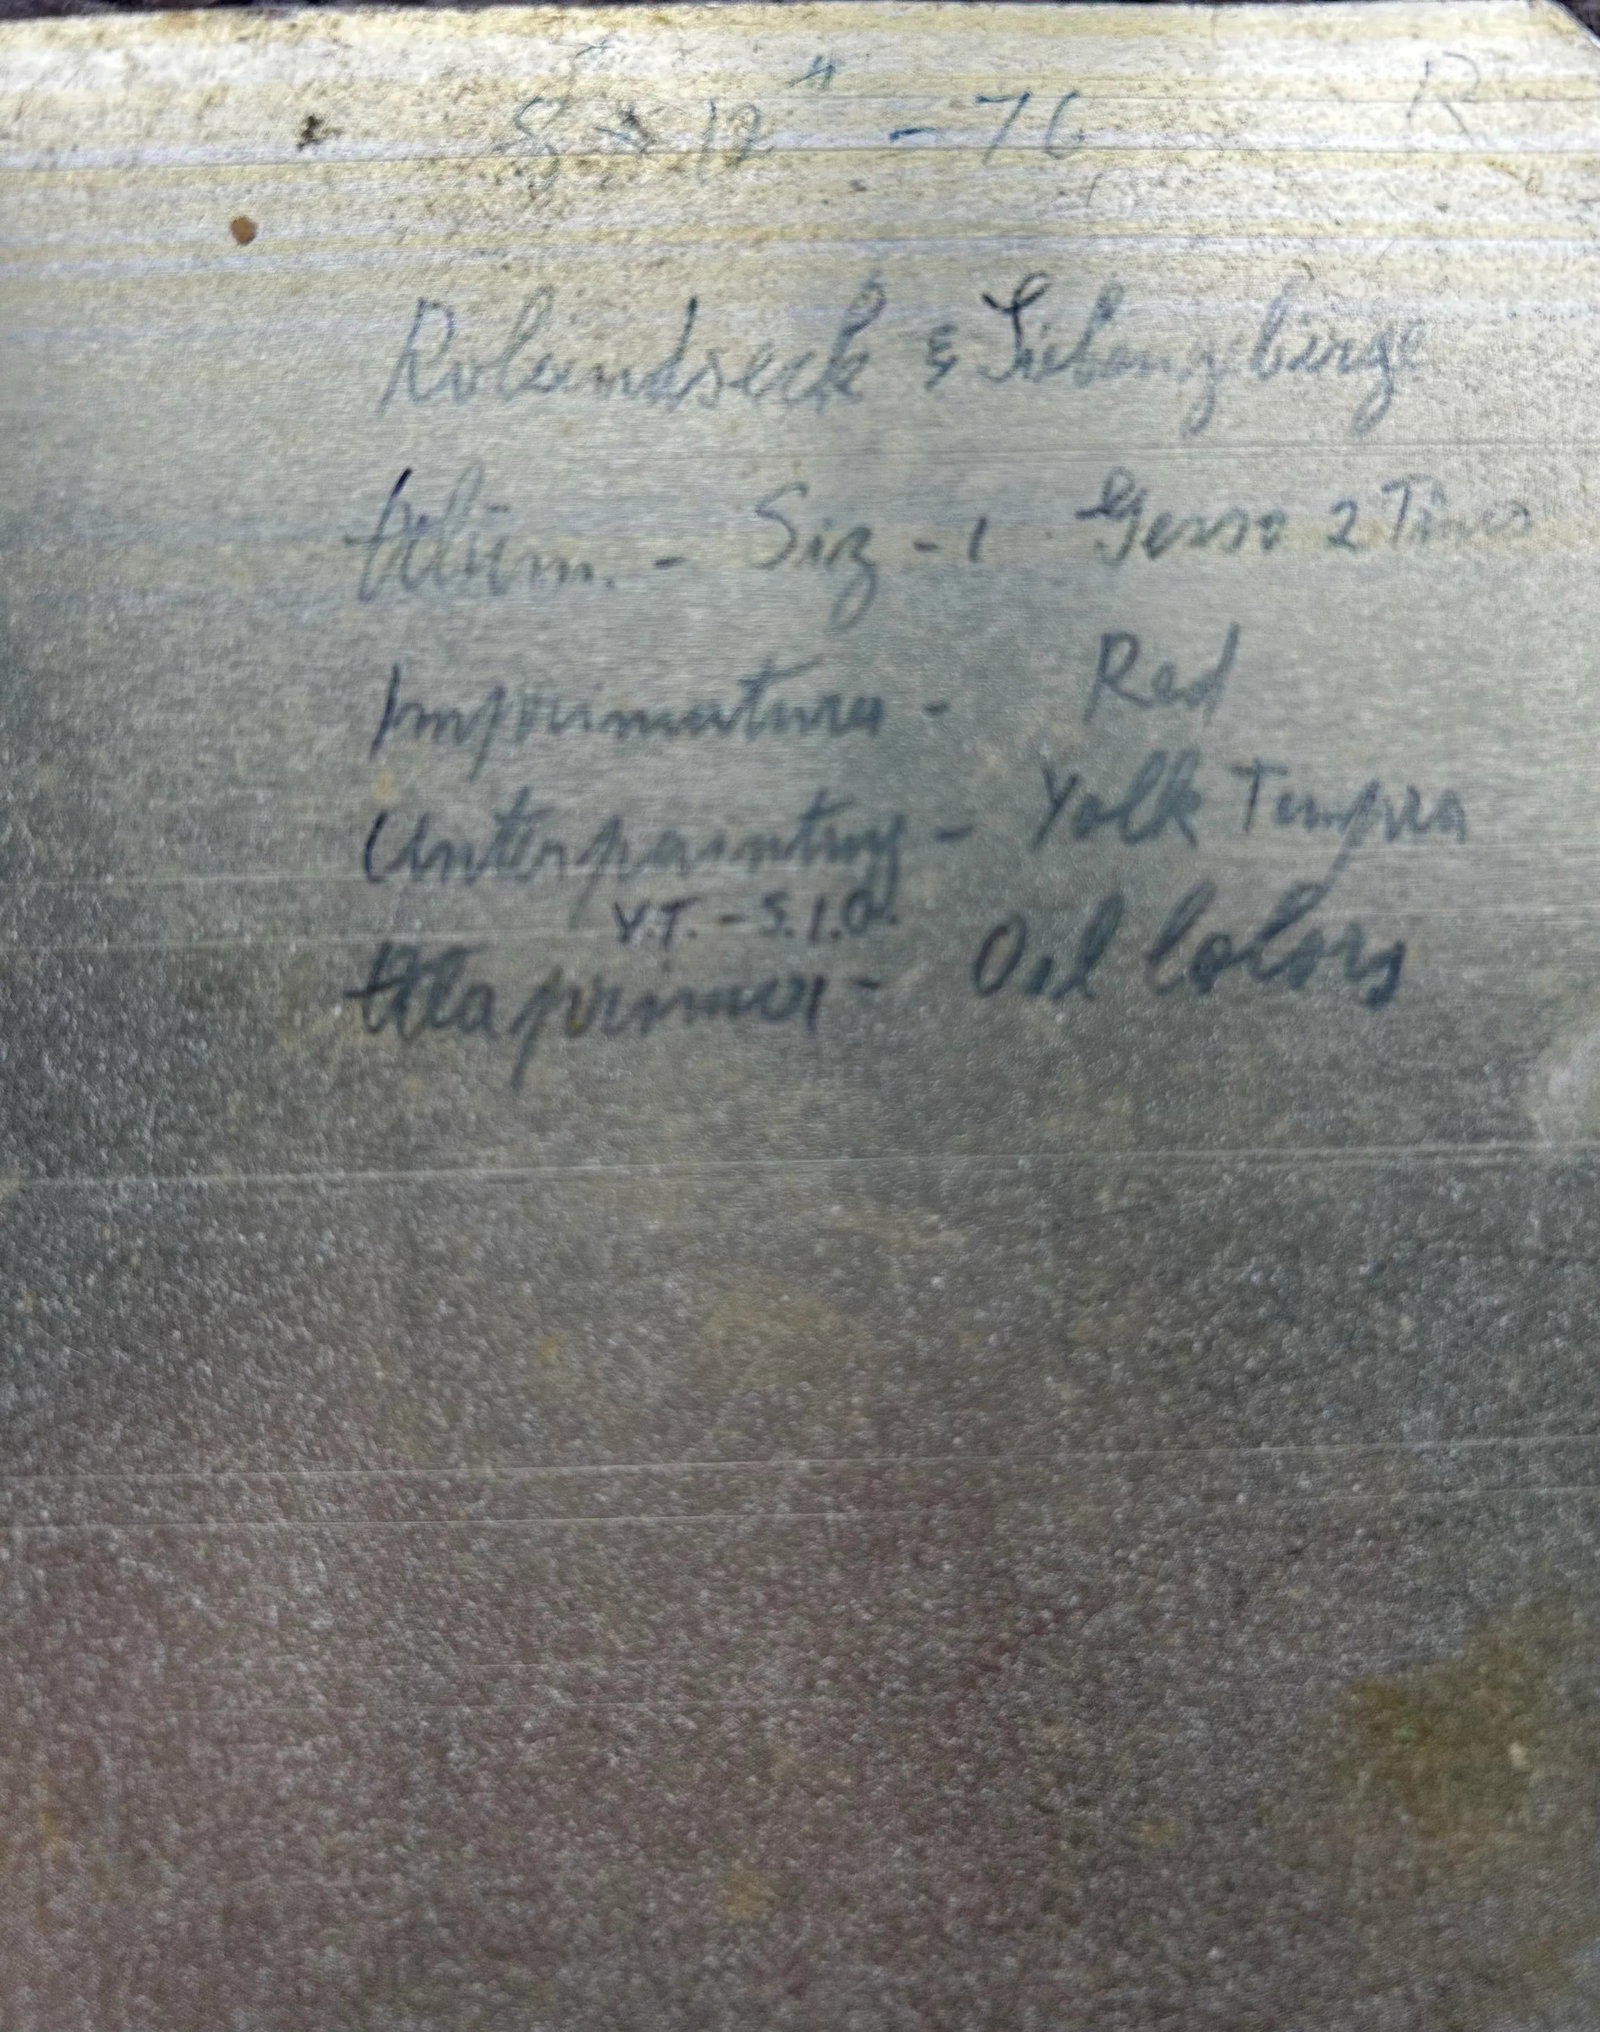 8 x 12" - 76 R
Rolandseck & Siebengebirge
Alum. - Siz - 1 Gesso 2 Times
Imprimatura - Red
Unterpainting - Yolk Tempra
Y.T. - S.I.O.
Alla prima - Oil Colors